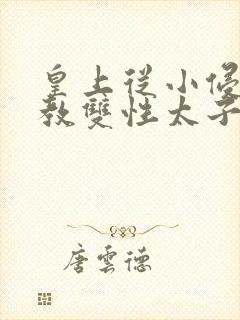 皇上從小侵
教雙性太子
唐雲德